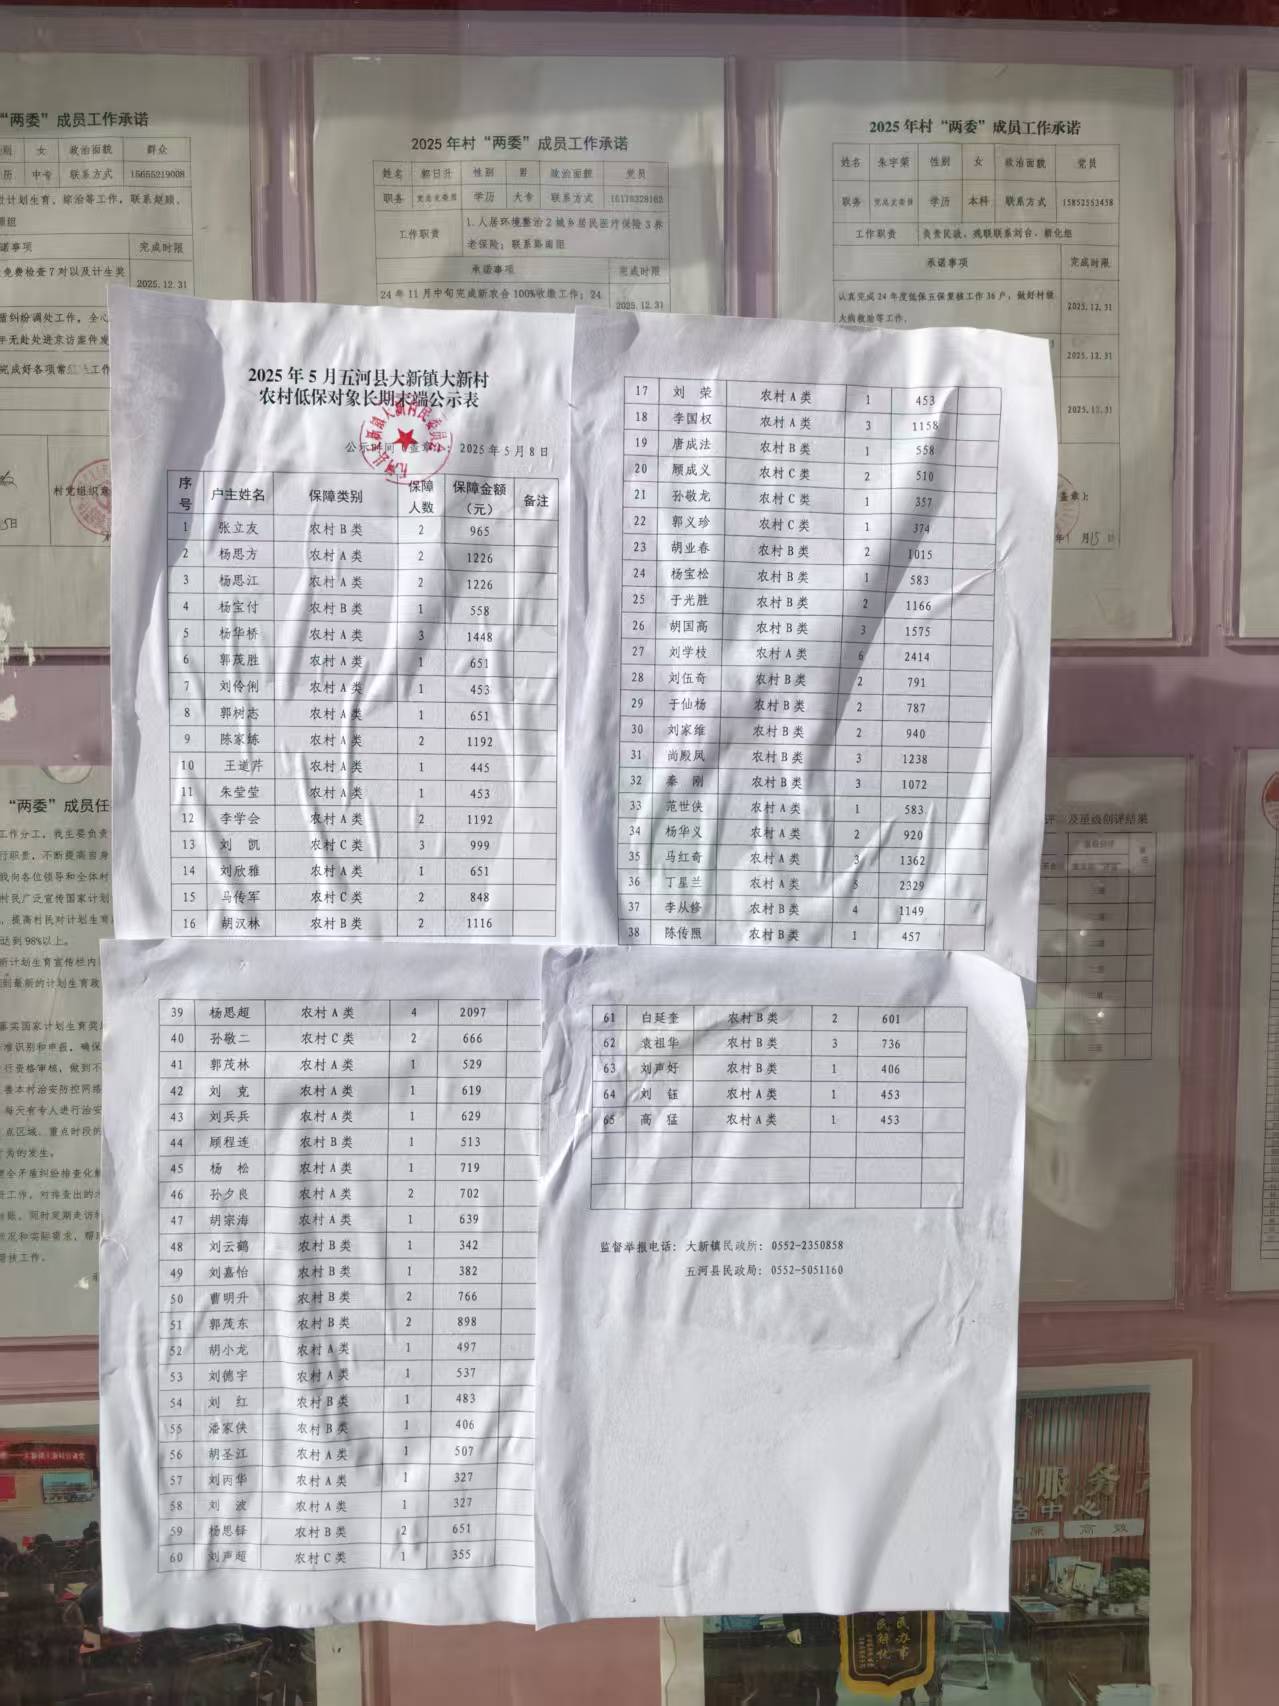 “两委”成员工作承诺
女 政治面貌 群众
历 中专 联系方式 15655219008
计划生育、综治等工作，联系赵顾、
诺事项 完成时限
免费检查7对以及计生奖
2025.12.31
盾纠纷调处工作，全心
年无赴处进京访案件发
完成好各项常 工作
村党组织意
2025年村“两委”成员工作承诺
姓名 郭日升 性别 男 政治面貌 党员
职务 党总支委员 学历 大专 联系方式
工作职责 1.人居环境整治2城乡居民医疗保险3养
老保险；联系路南组
承诺事项 完成时限
24年11月中旬完成新农合100%收缴工作；24
2025.12.31
2025年村“两委”成员工作承诺
姓名 朱宇荣 性别 女 政治面貌 党员
职务 党总支委员 学历 本科 联系方式 15852553458
工作职责 负责民政、残联联系刘台、新化组
承诺事项 完成时限
认真完成24年度低保五保复核工作36户，做好村级
大病救助等工作.
2025.12.31
2025.12.31
2025.12.31
盖章）：
月15日
2025年5月五河县大新镇大新村
农村低保对象长期末端公示表
公示时间（盖章）：2025年5月8日
序号 户主姓名 保障类别 保障人数 保障金额（元） 备注
1 张立友 农村B类 2 965
2 杨思方 农村A类 2 1226
3 杨思江 农村A类 2 1226
4 杨宝付 农村B类 1 558
5 杨华桥 农村A类 3 1448
6 郭茂胜 农村A类 1 651
7 刘伶俐 农村A类 1 453
8 郭树志 农村A类 1 651
9 陈家练 农村A类 2 1192
10 王道芹 农村A类 1 445
11 朱莹莹 农村A类 1 453
12 李学会 农村A类 2 1192
13 刘 凯 农村C类 3 999
14 刘欣雅 农村A类 1 651
15 马传军 农村C类 2 848
16 胡汉林 农村B类 2 1116
17 刘 荣 农村A类 1 453
18 李国权 农村A类 3 1158
19 唐成法 农村B类 1 558
20 顾成义 农村C类 2 510
21 孙敬龙 农村C类 1 357
22 郭义珍 农村C类 1 374
23 胡业春 农村B类 2 1015
24 杨宝松 农村B类 1 583
25 于光胜 农村B类 2 1166
26 胡国高 农村B类 3 1575
27 刘学枝 农村A类 6 2414
28 刘伍奇 农村B类 2 791
29 于仙杨 农村B类 2 787
30 刘家维 农村B类 2 940
31 尚殿凤 农村B类 3 1238
32 秦 刚 农村B类 3 1072
33 范世侠 农村A类 1 583
34 杨华义 农村A类 2 920
35 马红奇 农村A类 3 1362
36 丁星兰 农村A类 5 2329
37 李从修 农村B类 4 1149
38 陈传照 农村B类 1 457
39 杨思超 农村A类 4 2097
40 孙敬二 农村C类 2 666
41 郭茂林 农村A类 1 529
42 刘 克 农村A类 1 619
43 刘兵兵 农村A类 1 629
44 顾程连 农村B类 1 513
45 杨 松 农村A类 1 719
46 孙夕良 农村A类 2 702
47 胡宗海 农村A类 1 639
48 刘云鹤 农村B类 1 342
49 刘嘉怡 农村B类 1 382
50 曹明升 农村B类 2 766
51 郭茂东 农村B类 2 898
52 胡小龙 农村A类 1 497
53 刘德宇 农村A类 1 537
54 刘 红 农村B类 1 483
55 潘家侠 农村B类 1 406
56 胡圣江 农村A类 1 507
57 刘丙华 农村A类 1 327
58 刘 波 农村A类 1 327
59 杨思铎 农村B类 2 651
60 刘声超 农村C类 1 355
61 白延奎 农村B类 2 601
62 袁祖华 农村B类 3 736
63 刘声好 农村B类 1 406
64 刘 钰 农村A类 1 453
65 高 猛 农村A类 1 453
监督举报电话：大新镇民政所：0552-2350858
五河县民政局：0552-5051160
“两委”成员任
工作分工，我主要负责
行职责，不断提高自身
我向各位领导和全体村
村民广泛宣传国家计划
，提高村民对计划生育
达到98%以上。
新计划生育宣传栏内
到最新的计划生育政
落实国家计划生育奖
准识别和申报，确保
行资格审核，做到不
善本村治安防控网络
每天有专人进行治安
点区域、重点时段的
为的发生。
全矛盾纠纷排查化解
工作，对排查出的矛
况和实际需求，帮
帮扶工作。
评 及星级创评结果
服务
治中心
廉 高效
民办事
民解忧